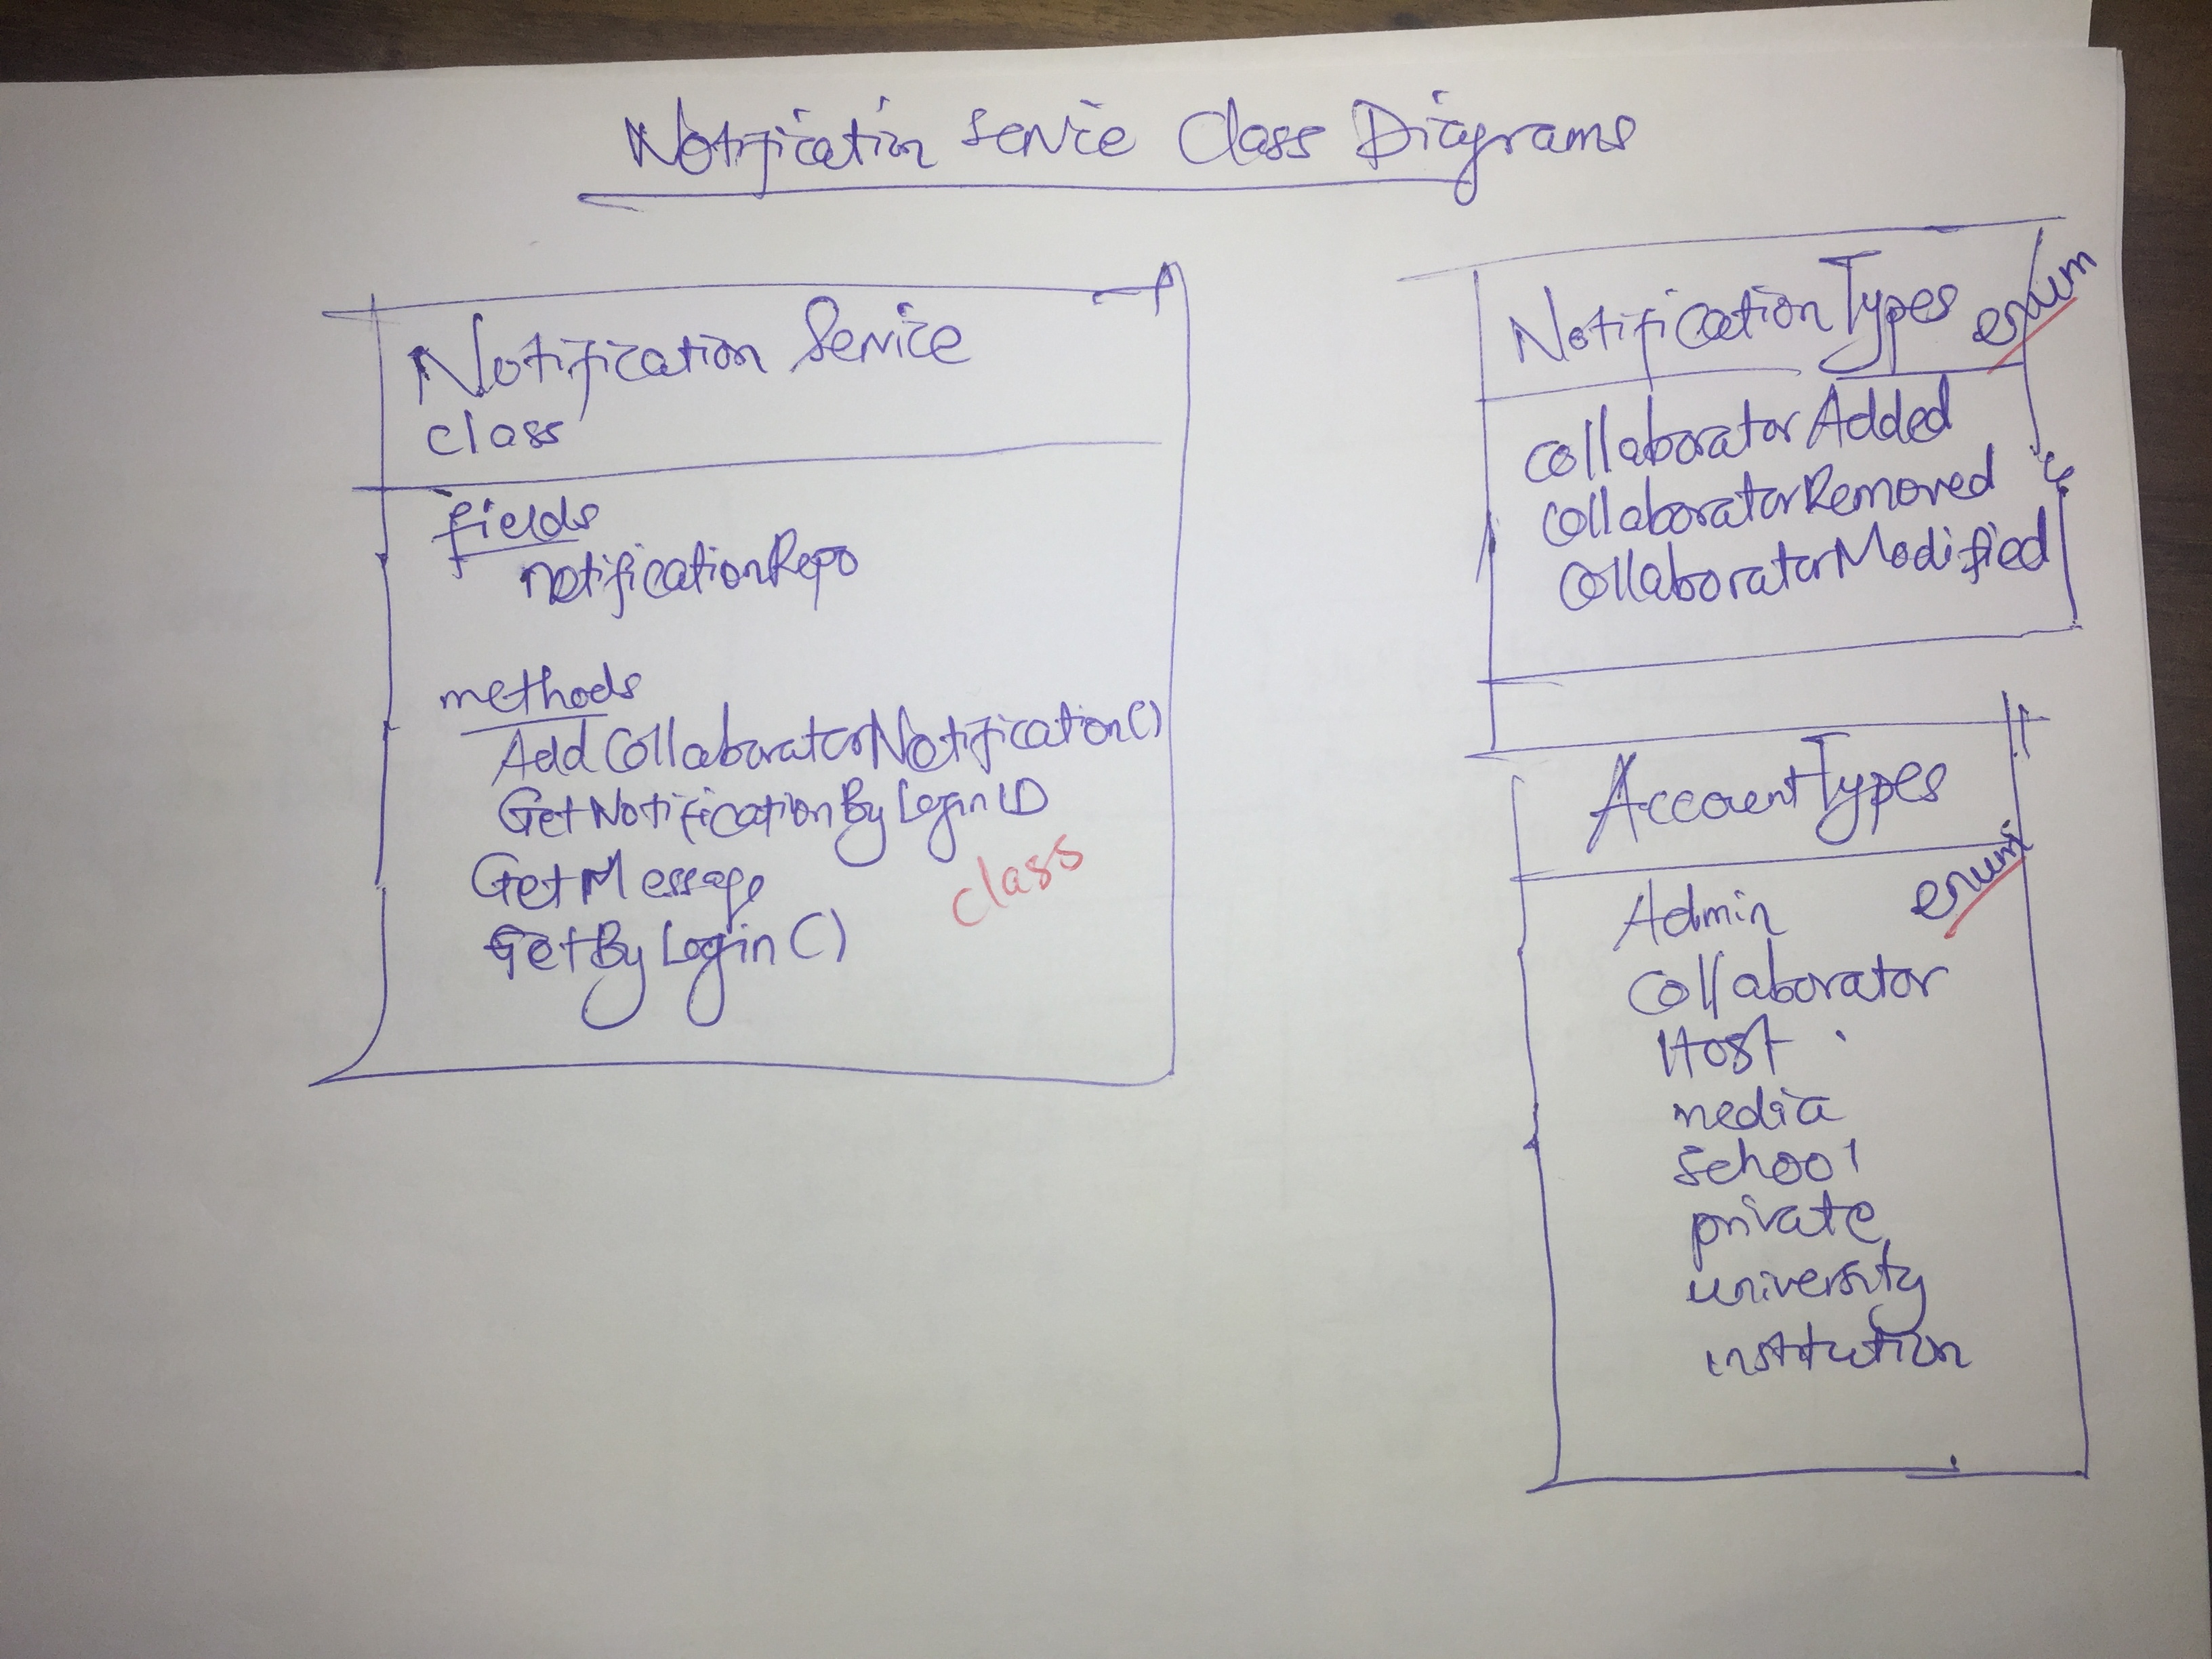 Notification Service Class Diagrams
Notification Service
class
fields
notificationRepo
methods
AddCollaboratorNotification()
GetNotificationByLoginID
GetMessage
GetByLogin()
class
NotificationTypes enum
CollaboratorAdded
CollaboratorRemoved
CollaboratorModified
AccountTypes
enum
Admin
Collaborator
Host
media
School
private
university
institution